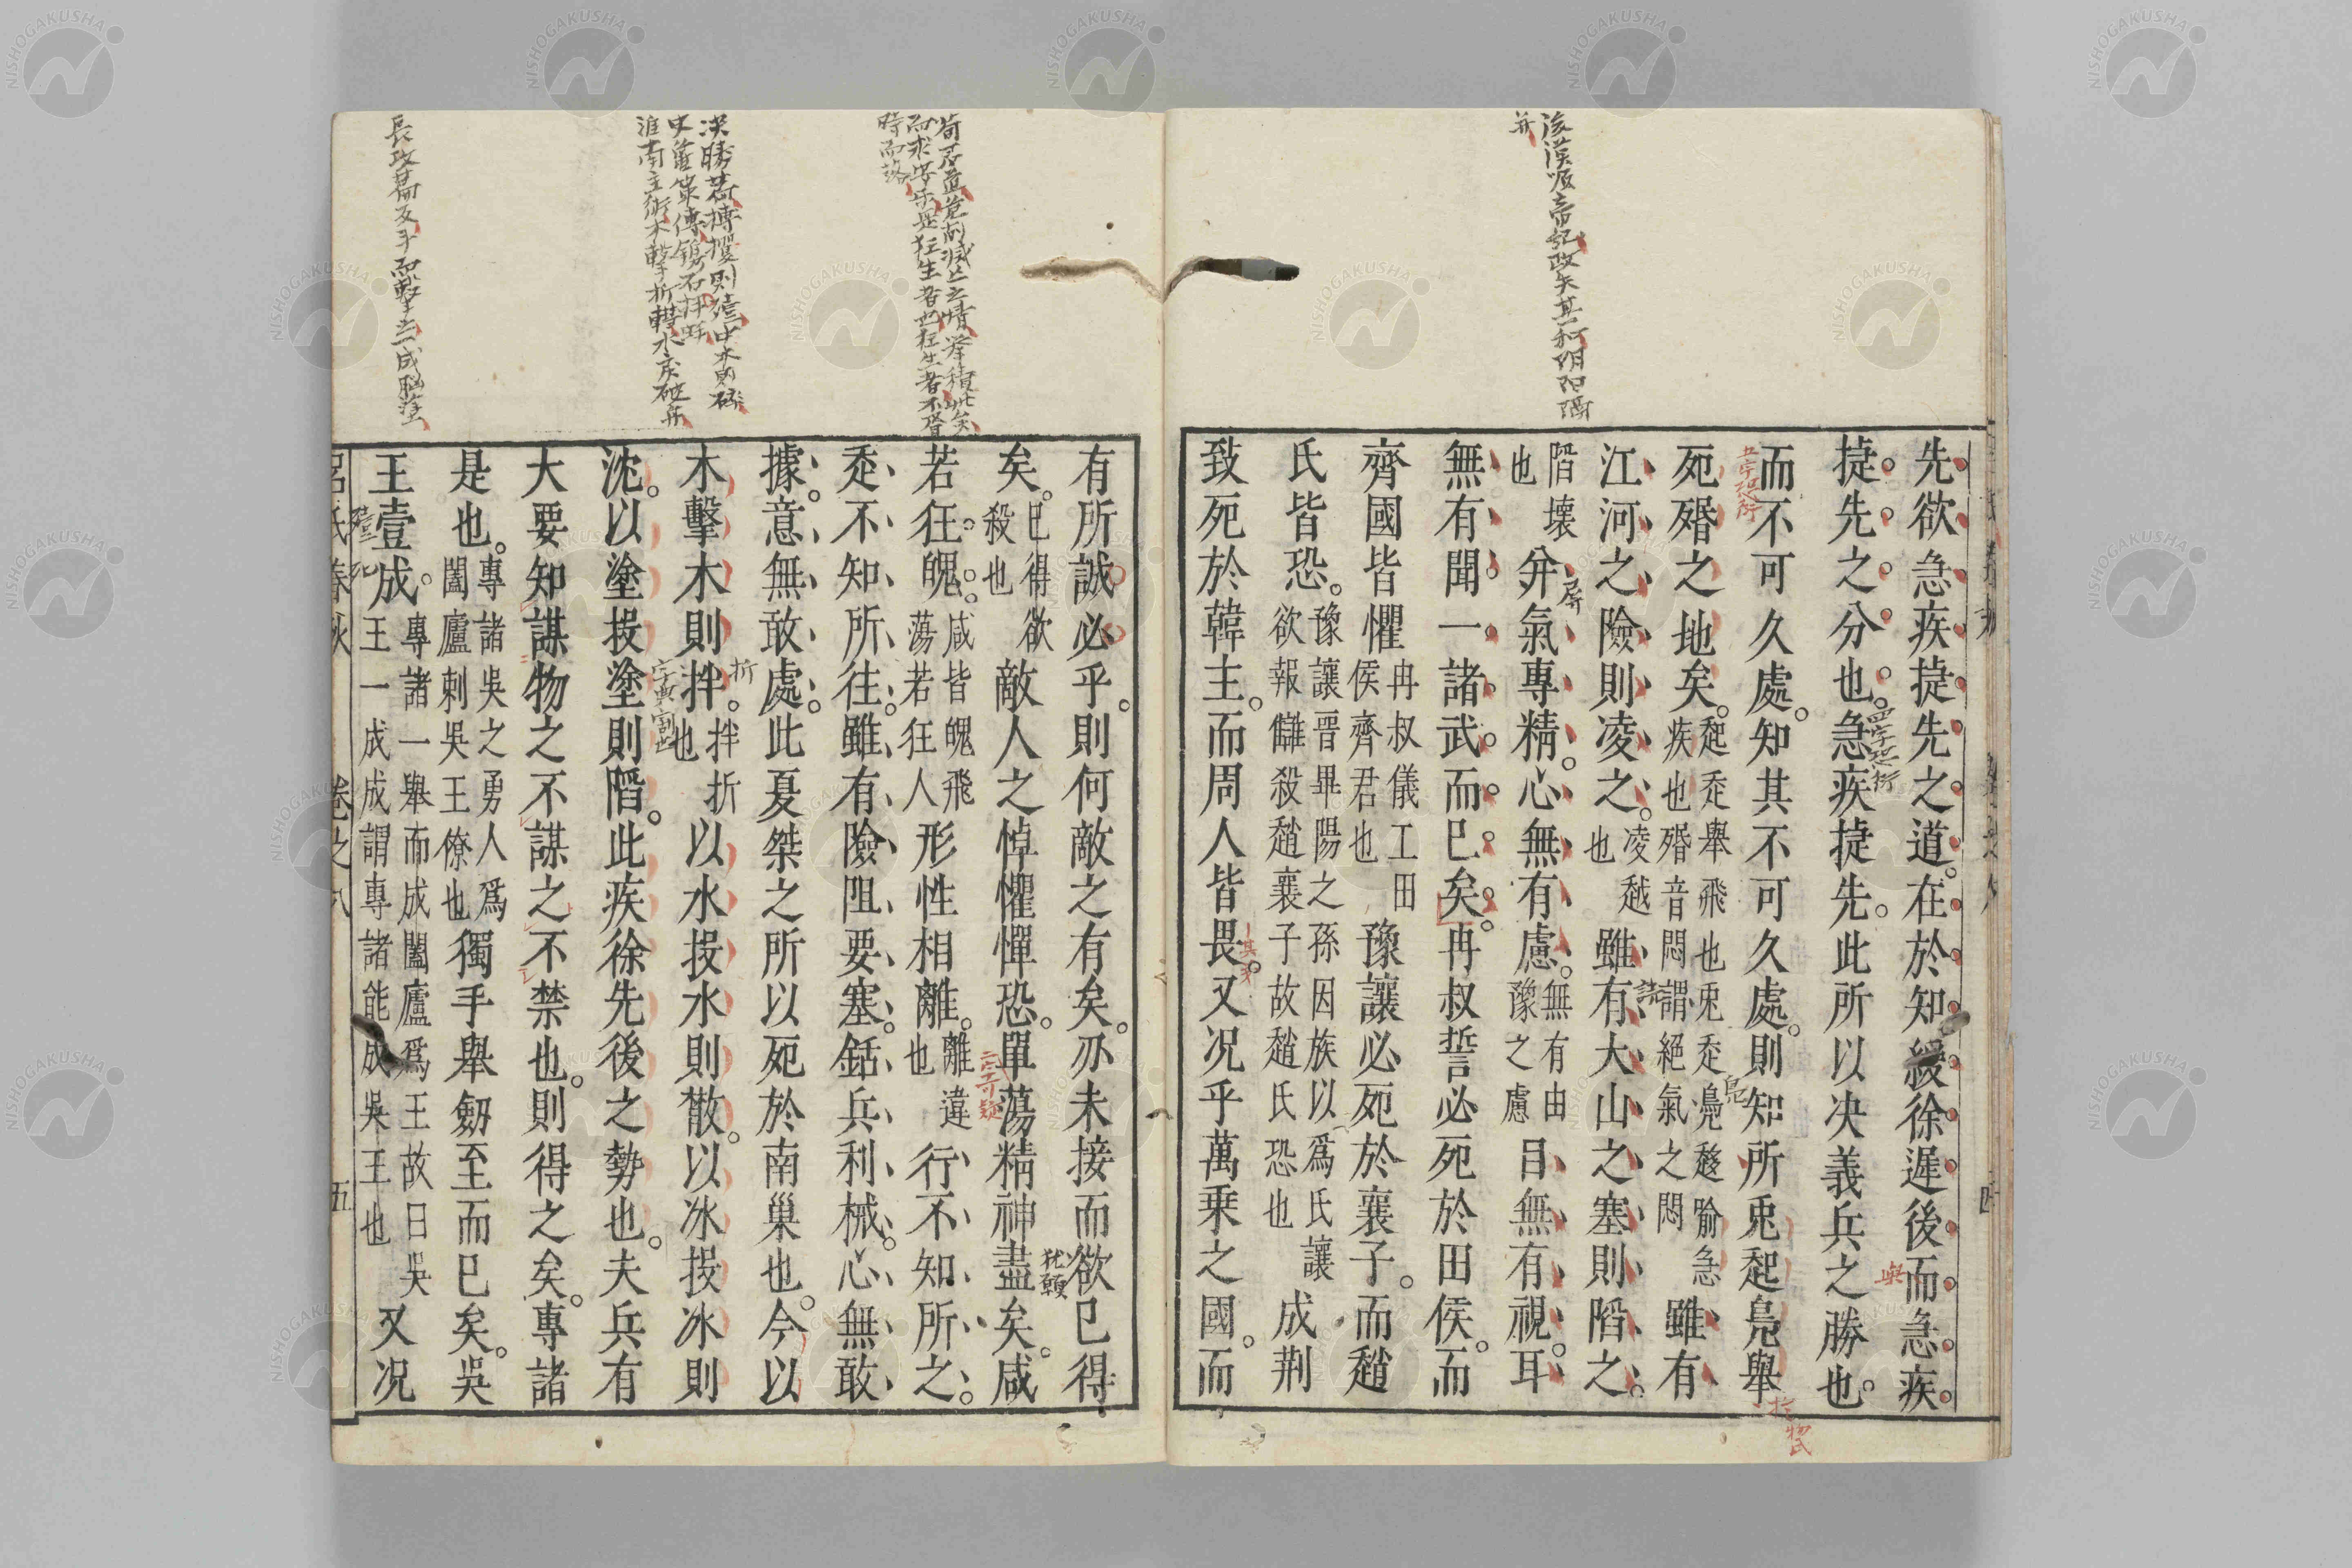 先欲急疾捷先之道在於知緩徐遲後而急疾
捷先之分也急疾捷先此所以決義兵之勝也
而不可久處知其不可久處則知所兎起鳧舉
死殙之地矣起走舉飛也兎走鳧趍喻急疾也殙音悶謂絕氣之悶雖有
江河之險則凌之凌越也雖有大山之塞則陷之
陷壞也并氣專精心無有慮無有由豫之慮目無有視耳
無有聞一諸武而已矣冉叔誓必死於田侯而
齊國皆懼冉叔儀工田侯齊君也豫讓必死於襄子而趙
氏皆恐豫讓晉畢陽之孫因族以爲氏讓欲報讎殺趙襄子故趙氏恐也成荆
致死於韓主而周人皆畏又况乎萬乘之國而
有所誠必乎則何敵之有矣刃未接而欲已得
矣已得欲殺也敵人之悼懼憚恐單蕩精神盡矣咸
若狂魄咸皆魄飛蕩若狂人形性相離離違也行不知所之
走不知所往雖有險阻要塞銛兵利械心無敢
據意無敢處此夏桀之所以死於南巢也今以
木擊木則拌拌折也以水投水則散以冰投冰則
沈以塗投塗則陷此疾徐先後之勢也夫兵有
大要知謀物之不謀之不禁也則得之矣專諸
是也專諸吳之勇人爲闔廬刺吳王僚也獨手舉劒至而已矣吳
王壹成專諸一舉而成闔廬爲王故曰吳王一成成謂專諸能成吳王也又况
呂氏春秋 卷之八 五
後漢順帝紀政失其和陰陽隔并
四字恐衍
五字恐衍
屏
鳧
與
折
二字可疑